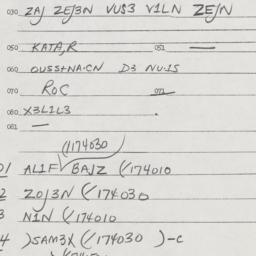 030 ZAJ ZEJ3N VUS3 V1LN ZEJN
050 KATA,R 051 —
060 OUSS+NA·CN D3 NU·1S
070 ROC 071 —
080 X3L1L3
081 —
(/174030
01 AL1F BAJZ (/174010
2 ZOJ3N (/174030
3 N1N (/174010
4 )SAM3X (/174030 )-C